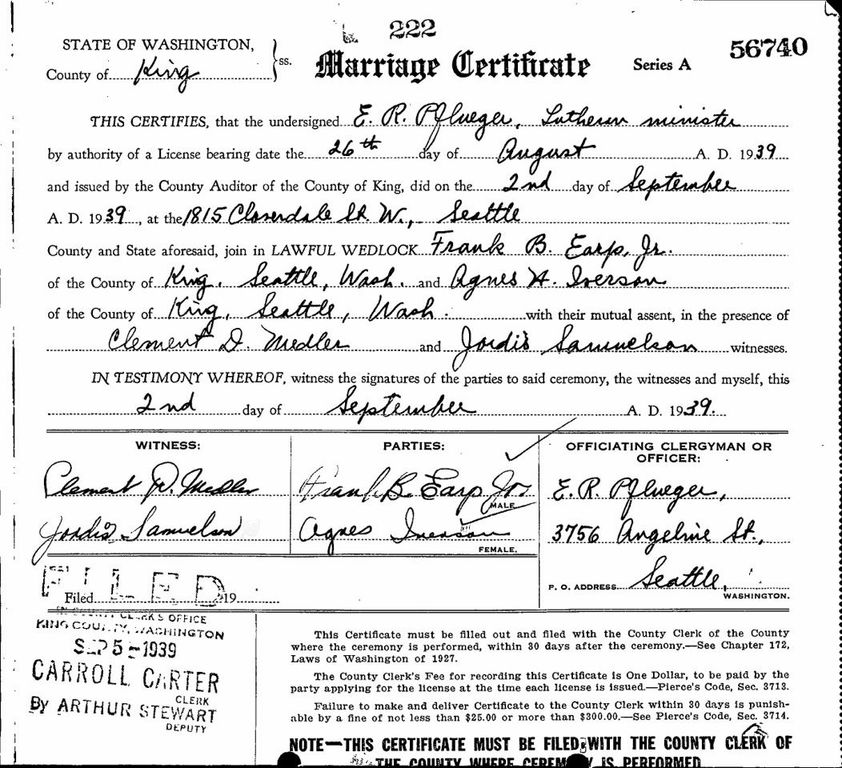 222
STATE OF WASHINGTON,
County of King ss.
Marriage Certificate
Series A 56740
THIS CERTIFIES, that the undersigned E. R. Pflueger, Lutheran minister
by authority of a License bearing date the 26th day of August A. D. 1939
and issued by the County Auditor of the County of King, did on the 2nd day of September
A. D. 1939, at the 1815 Cloverdale St. W., Seattle
County and State aforesaid, join in LAWFUL WEDLOCK Frank B. Earp, Jr.
of the County of King, Seattle, Wash. and Agnes H. Iverson
of the County of King, Seattle, Wash. with their mutual assent, in the presence of
Clement D. Medler and Jordis Samuelson witnesses.
IN TESTIMONY WHEREOF, witness the signatures of the parties to said ceremony, the witnesses and myself, this
2nd day of September A. D. 1939.
WITNESS:
Clement D. Medler
Jordis Samuelson
PARTIES:
Frank B. Earp Jr.
MALE.
Agnes Iverson
FEMALE.
OFFICIATING CLERGYMAN OR
OFFICER:
E. R. Pflueger,
3756 Angeline St.,
P. O. ADDRESS Seattle,
WASHINGTON.
FILED
Filed 19
IN COUNTY CLERK'S OFFICE
KING COUNTY, WASHINGTON
SEP 5-1939
CARROLL CARTER
CLERK
By ARTHUR STEWART
DEPUTY
This Certificate must be filled out and filed with the County Clerk of the County
where the ceremony is performed, within 30 days after the ceremony.—See Chapter 172,
Laws of Washington of 1927.
The County Clerk's Fee for recording this Certificate is One Dollar, to be paid by the
party applying for the license at the time each license is issued.—Pierce's Code, Sec. 3713.
Failure to make and deliver Certificate to the County Clerk within 30 days is punish-
able by a fine of not less than $25.00 or more than $300.00.—See Pierce's Code, Sec. 3714.
NOTE—THIS CERTIFICATE MUST BE FILED WITH THE COUNTY CLERK OF
THE COUNTY WHERE CEREMONY IS PERFORMED